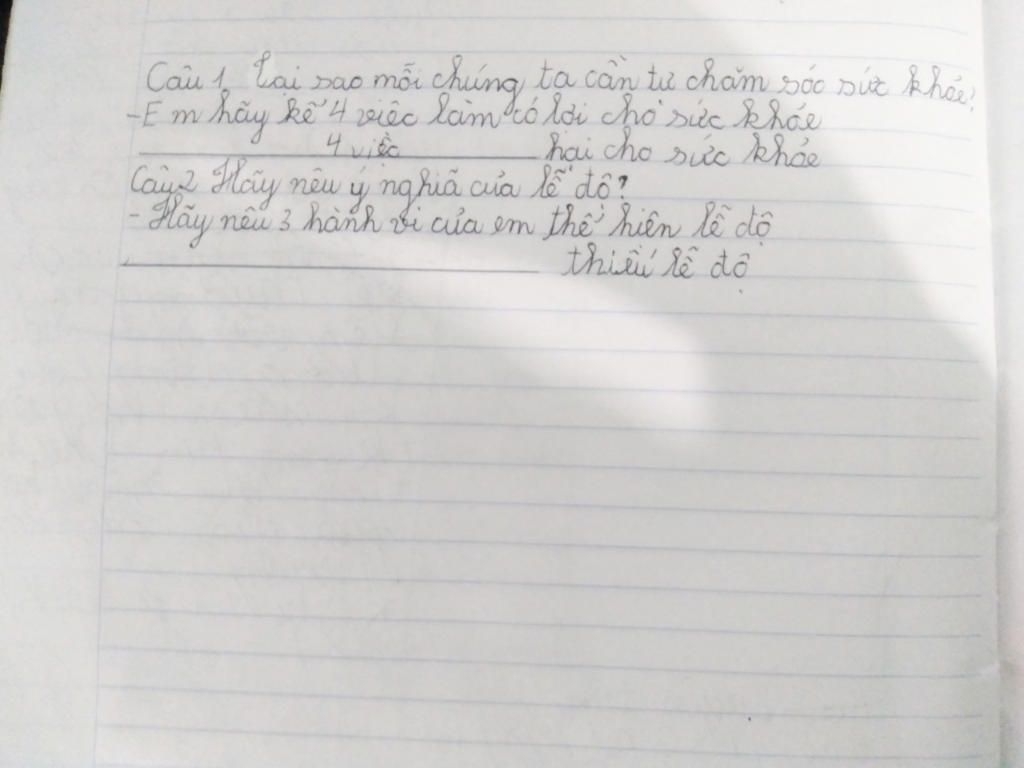 Câu 1 Tại sao mỗi chúng ta cần tự chăm sóc sức khỏe?
- Em hãy kể 4 việc làm có lợi cho sức khỏe
4 việc hại cho sức khỏe
Câu 2 Hãy nêu ý nghĩa của lễ độ?
- Hãy nêu 3 hành vi của em thể hiện lễ độ
thiếu lễ độ